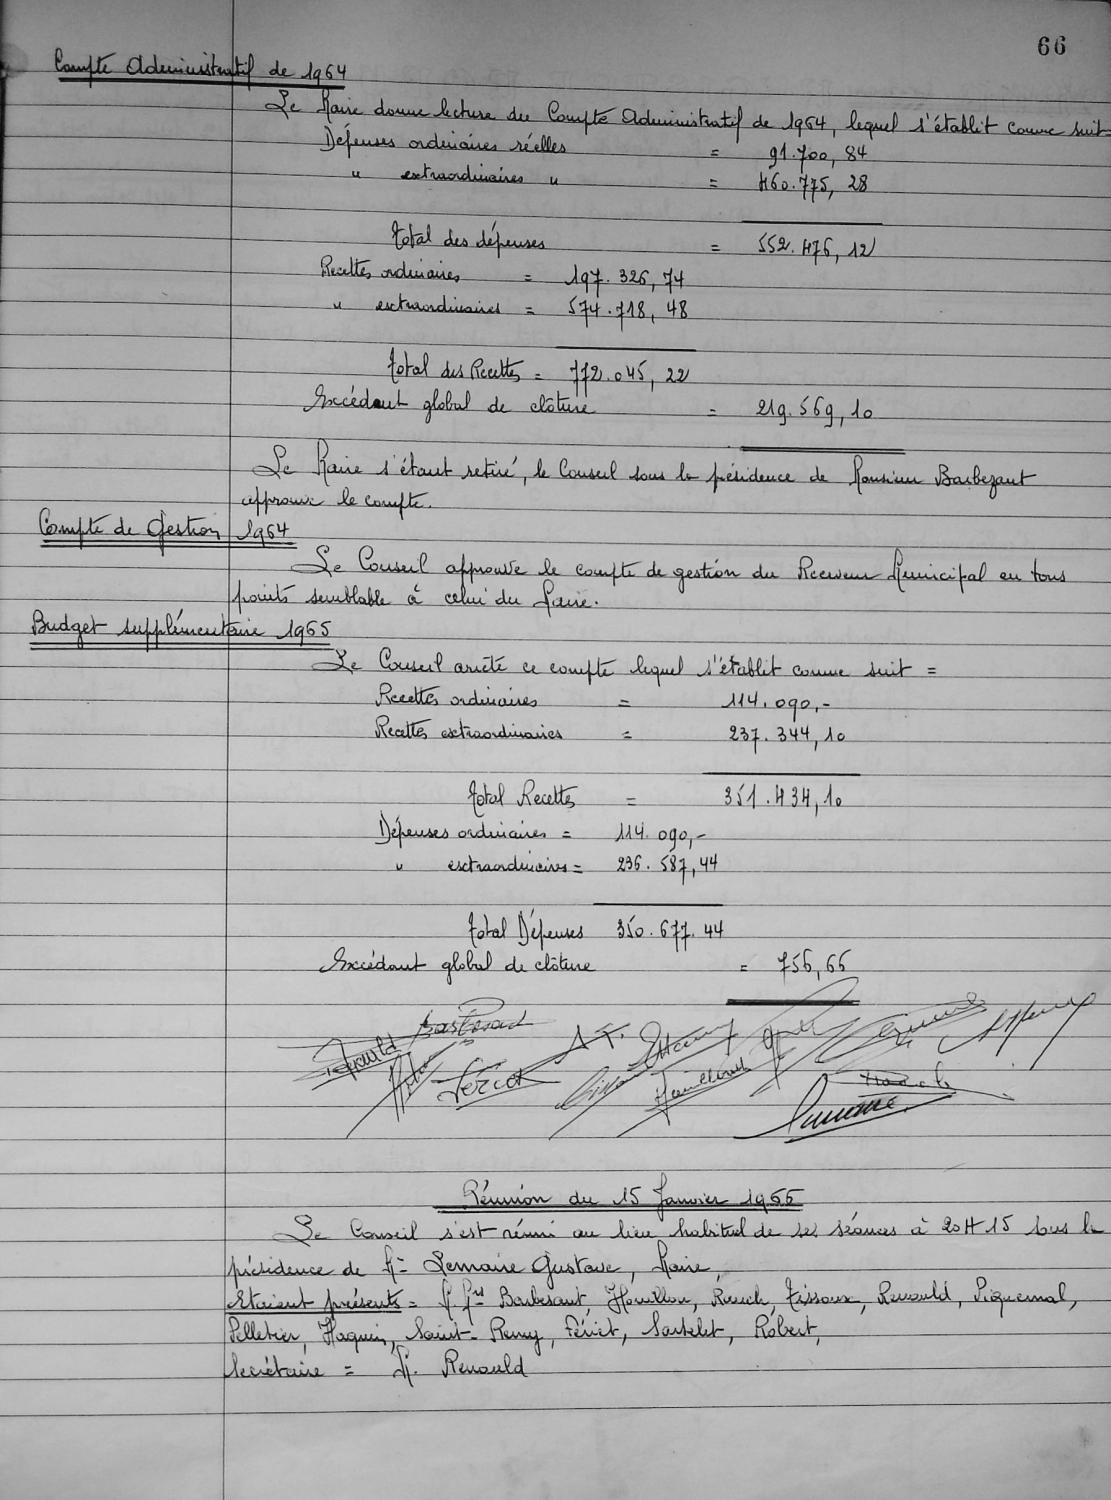 66
Compte Administratif de 1964
Le Maire donne lecture du Compte Administratif de 1964, lequel s'établit comme suit
Dépenses ordinaires réelles = 91.700,84
" extraordinaires " = 460.775,28
Total des dépenses = 552.476,12
Recettes ordinaires = 197.326,74
" extraordinaires = 574.718,48
Total des Recettes = 772.045,22
Excédent global de clôture = 219.569,10
Le Maire s'étant retiré, le Conseil sous la présidence de Monsieur Barbezant
approuve le compte.
Compte de Gestion 1964
Le Conseil approuve le compte de gestion du Receveur Municipal en tous
points semblable à celui du Maire.
Budget supplémentaire 1965
Le Conseil arrête ce compte lequel s'établit comme suit =
Recettes ordinaires = 114.090,-
Recettes extraordinaires = 237.344,10
Total Recettes = 351.434,10
Dépenses ordinaires = 114.090,-
" extraordinaires = 236.587,44
Total Dépenses 350.677.44
Excédent global de clôture = 756,66
Renauld
Férict
Réunion du 15 Janvier 1966
Le Conseil s'est réuni au lieu habituel de ses séances à 20H15 sous la
présidence de Mr Lemaire Gustave, Maire,
Etaient présents = M.Mrs Barbesant, Houillon, Rauch, Tissoux, Renauld, Piquemal,
Pelletier, Haquin, Saint-Remy, Férict, Sartelet, Robert,
Secrétaire = M. Renauld